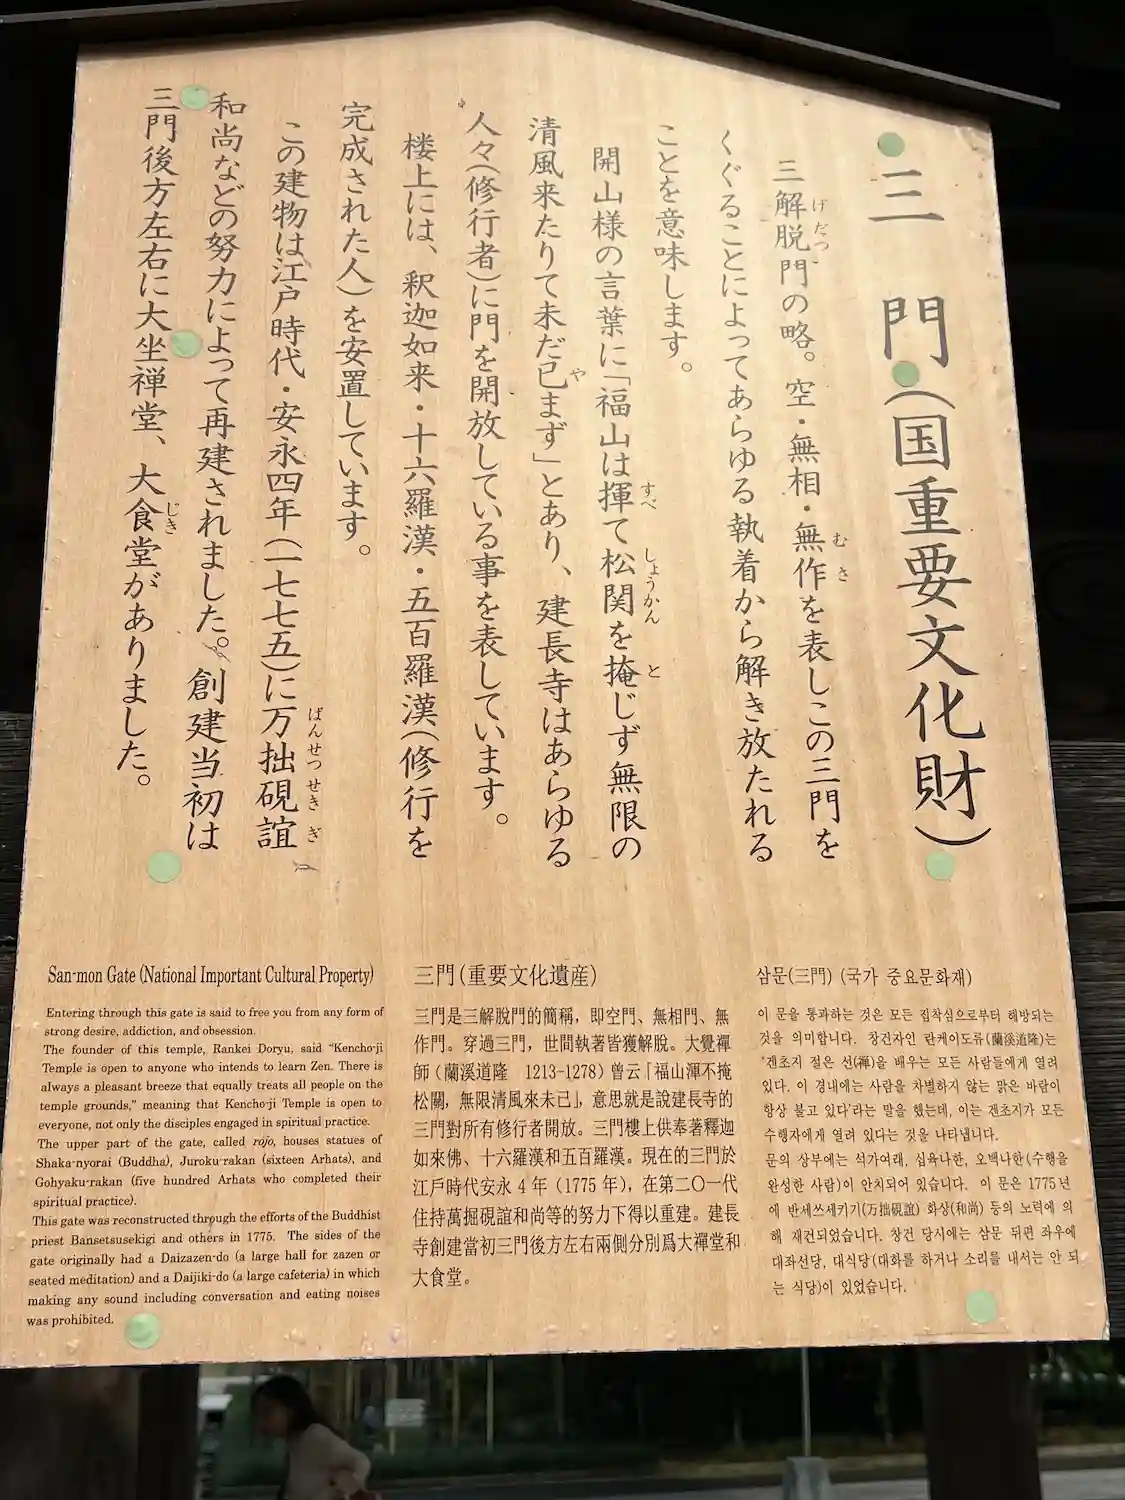 三門(国重要文化財)
三解脱門の略。空・無相・無作を表しこの三門を
げだつ
むさ
くぐることによってあらゆる執着から解き放たれる
ことを意味します。
開山様の言葉に「福山は揮て松関を掩じず無限の
すべ
しょうかん
と
清風来たりて未だ已まず」とあり、建長寺はあらゆる
や
人々(修行者)に門を開放している事を表しています。
楼上には、釈迦如来・十六羅漢・五百羅漢(修行を
完成された人)を安置しています。
この建物は江戸時代・安永四年(一七七五)に万拙硯誼
ばんせつせきぎ
和尚などの努力によって再建されました。創建当初は
三門後方左右に大坐禅堂、大食堂がありました。
じき
San-mon Gate (National Important Cultural Property)
Entering through this gate is said to free you from any form of
strong desire, addiction, and obsession.
The founder of this temple, Rankei Doryu, said "Kencho-ji
Temple is open to anyone who intends to learn Zen. There is
always a pleasant breeze that equally treats all people on the
temple grounds," meaning that Kencho-ji Temple is open to
everyone, not only the disciples engaged in spiritual practice.
The upper part of the gate, called rojo, houses statues of
Shaka-nyorai (Buddha), Juroku-rakan (sixteen Arhats), and
Gohyaku-rakan (five hundred Arhats who completed their
spiritual practice).
This gate was reconstructed through the efforts of the Buddhist
priest Bansetsusekigi and others in 1775. The sides of the
gate originally had a Daizazen-do (a large hall for zazen or
seated meditation) and a Daijiki-do (a large cafeteria) in which
making any sound including conversation and eating noises
was prohibited.
三門(重要文化遺産)
三門是三解脱門的簡稱，即空門、無相門、無
作門。穿過三門，世間執著皆獲解脫。大覺禪
師（蘭溪道隆 1213-1278）曾云「福山渾不掩
松關，無限清風來未已」，意思就是說建長寺的
三門對所有修行者開放。三門樓上供奉著釋迦
如來佛、十六羅漢和五百羅漢。現在的三門於
江戶時代安永 4 年（1775 年），在第二〇一代
住持萬掘硯誼和尚等的努力下得以重建。建長
寺創建當初三門後方左右兩側分別爲大禪堂和
大食堂。
삼문(三門) (국가 중요문화재)
이 문을 통과하는 것은 모든 집착심으로부터 해방되는
것을 의미합니다. 창건자인 란케이도류(蘭溪道隆)는
'겐초지 절은 선(禪)을 배우는 모든 사람들에게 열려
있다. 이 경내에는 사람을 차별하지 않는 맑은 바람이
항상 불고 있다'라는 말을 했는데, 이는 겐초지가 모든
수행자에게 열려 있다는 것을 나타냅니다.
문의 상부에는 석가여래, 십육나한, 오백나한(수행을
완성한 사람)이 안치되어 있습니다. 이 문은 1775년
에 반세쓰세키기(万拙硯誼) 화상(和尚) 등의 노력에 의
해 재건되었습니다. 창건 당시에는 삼문 뒤편 좌우에
대좌선당, 대식당(대화를 하거나 소리를 내서는 안 되
는 식당)이 있었습니다.